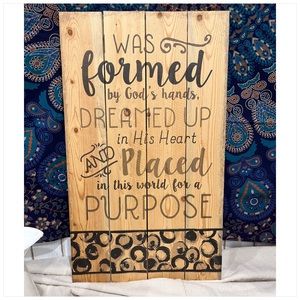 WAS
formed
by God's hands,
DREAMED UP
in His Heart
AND Placed
in this world for a
PURPOSE